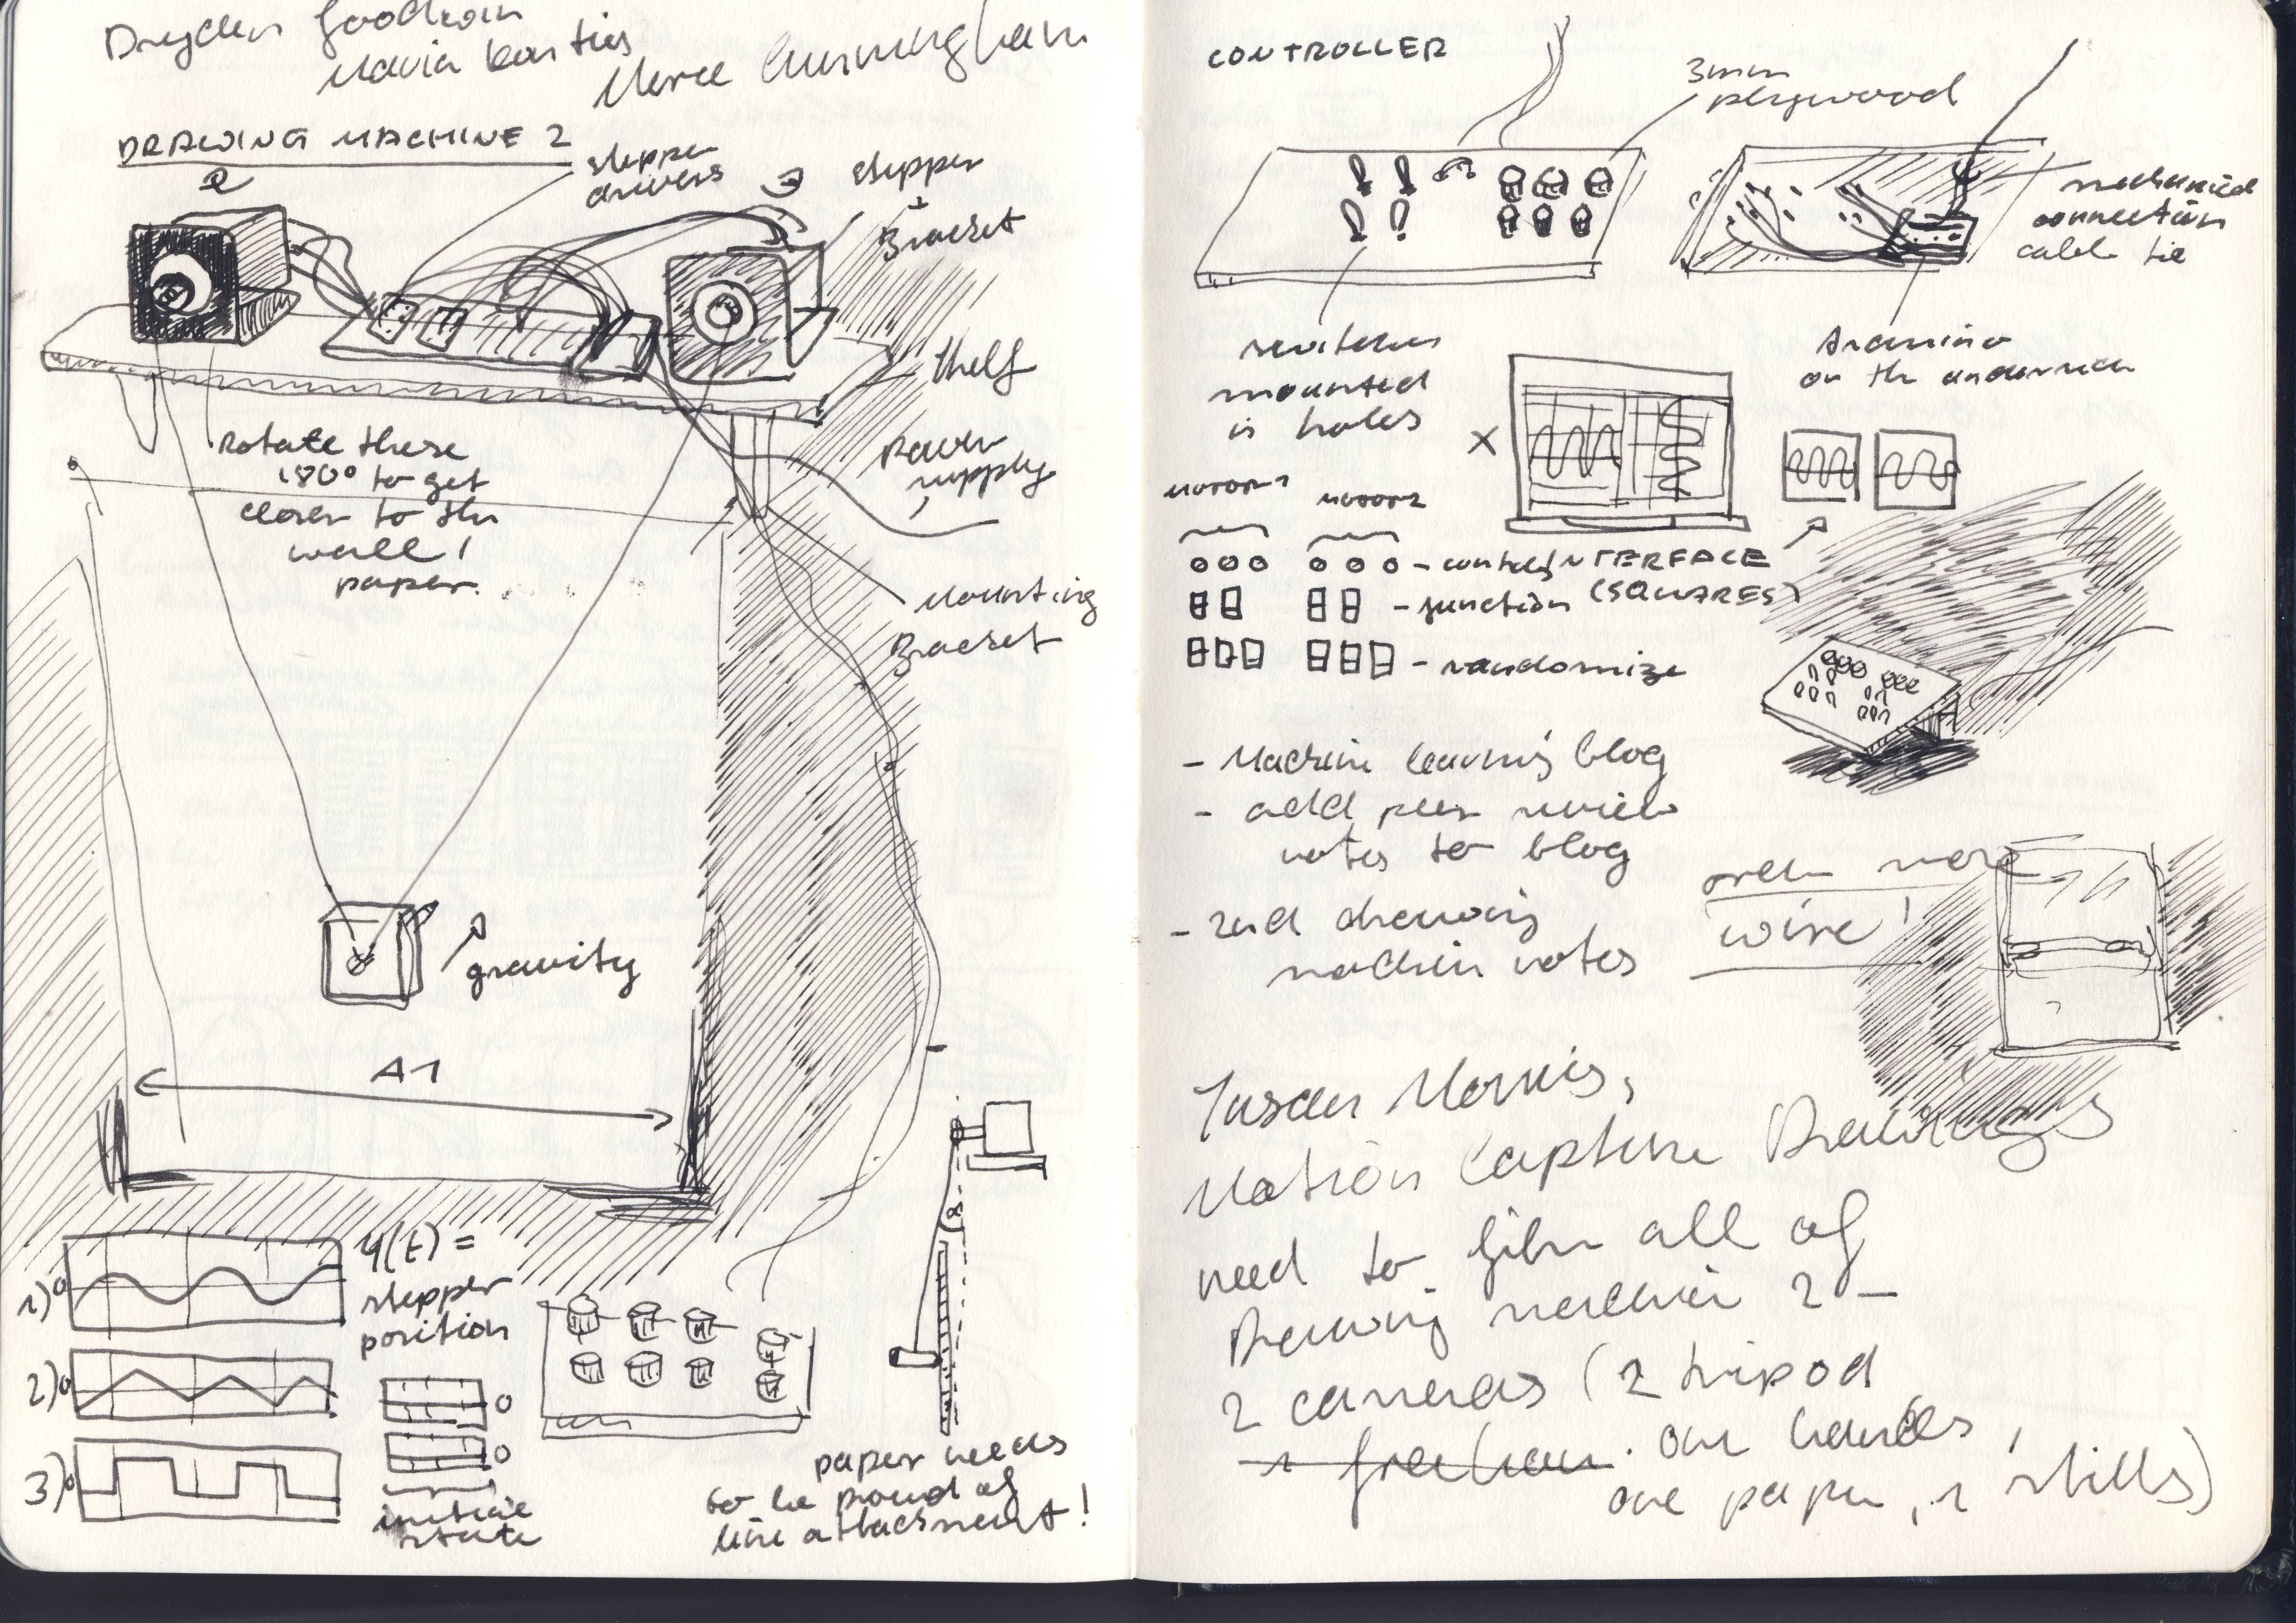 Dryden Goodwin
Maria
Merce Cunningham
DRAWING MACHINE 2
stepper
drivers
stepper
+
Bracket
shelf
power
supply
Rotate these
180° to get
closer to the
wall /
paper.
Mounting
Bracket
gravity
A1
1) 0
2) 0
3) 0
y(t) =
stepper
position
0
0
initial
state
α
paper needs
to be proud of
line attachment!
CONTROLLER
3mm
plywood
mechanical
connection
cable tie
switches
mounted
in holes
Arduino
on the underside
X
MOTOR 1 MOTOR 2
INTERFACE
(SQUARES)
- function
- randomize
- Machine learning blog
- add peer review
notes to blog
- 2nd drawing
machine notes
order more
wire!
Susan Morris,
Motion Capture Drawings
need to film all of
Drawing machine 2 -
2 cameras (2 tripod
. one handles,
one paper, 1 stills)